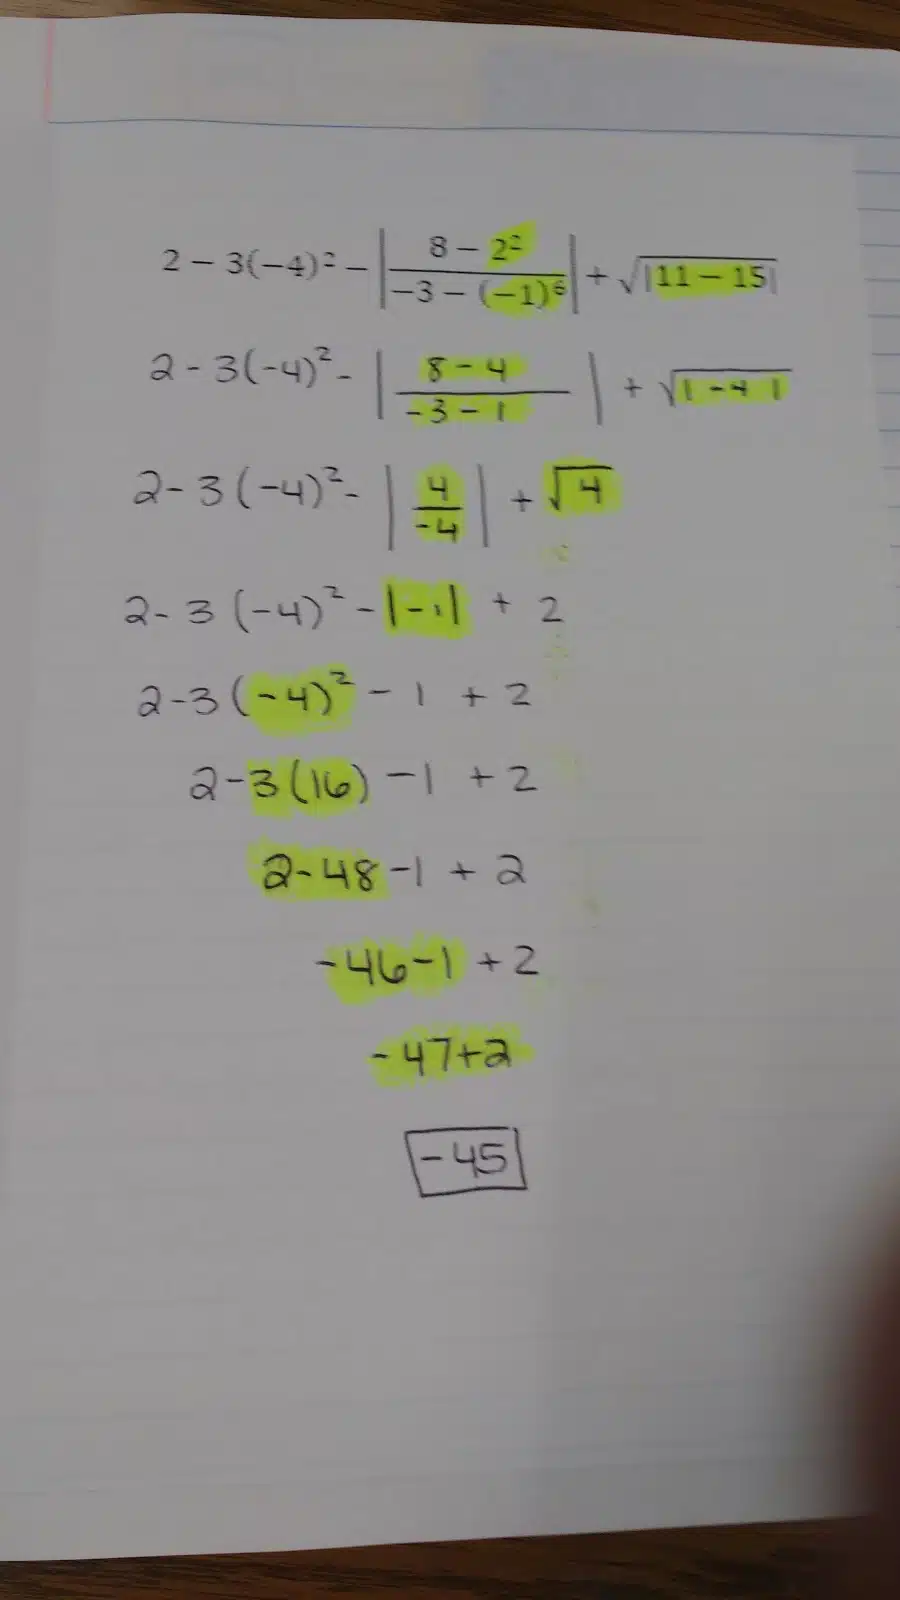 2 − 3(−4)² − |(8 − 2²)/(−3 − (−1)⁶)| + √|11 − 15|
2 - 3(-4)² - |(8 - 4)/(-3 - 1)| + √|-4|
2 - 3(-4)² - |4/-4| + √4
2 - 3(-4)² - |-1| + 2
2 - 3(-4)² - 1 + 2
2 - 3(16) - 1 + 2
2 - 48 - 1 + 2
-46 - 1 + 2
-47 + 2
-45